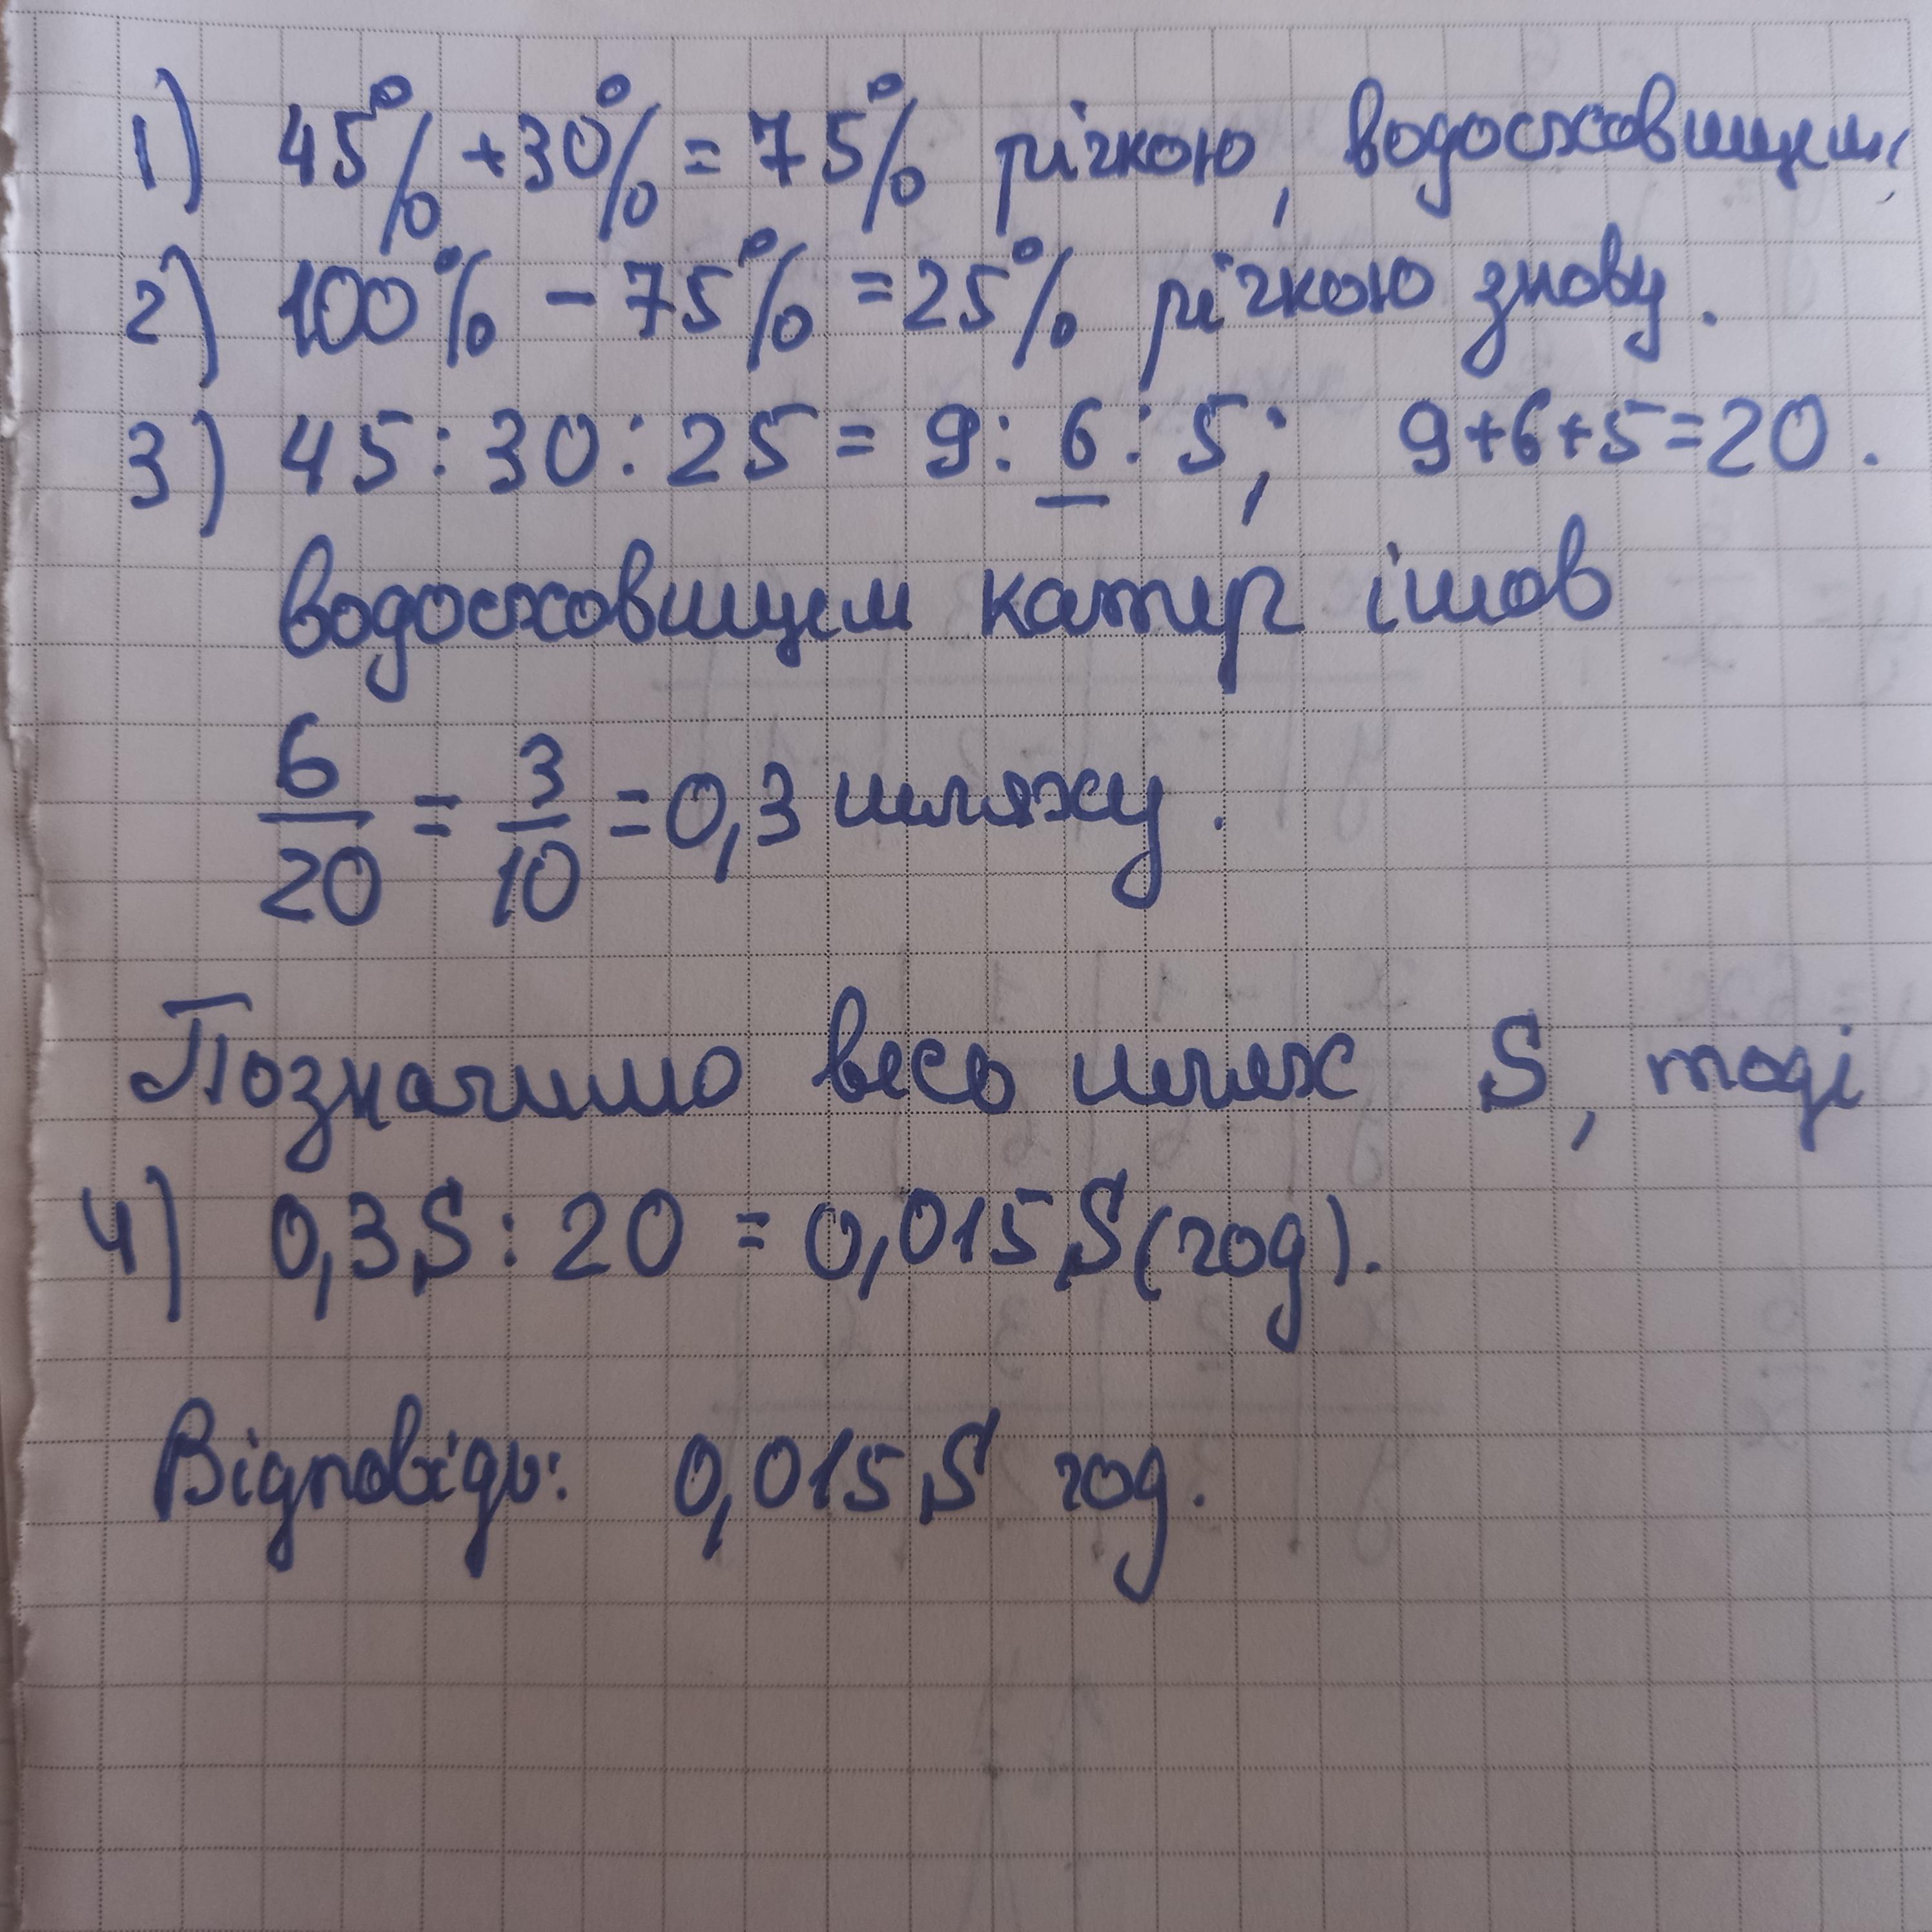 1) 45% + 30% = 75% річкою, водосховищем
2) 100% - 75% = 25% річкою знову.
3) 45 : 30 : 25 = 9 : 6 : 5; 9+6+5=20.
водосховищем катер ішов
6/20 = 3/10 = 0,3 шляху.
Позначимо весь шлях S, тоді
4) 0,3S : 20 = 0,015S (год).
Відповідь: 0,015S год.